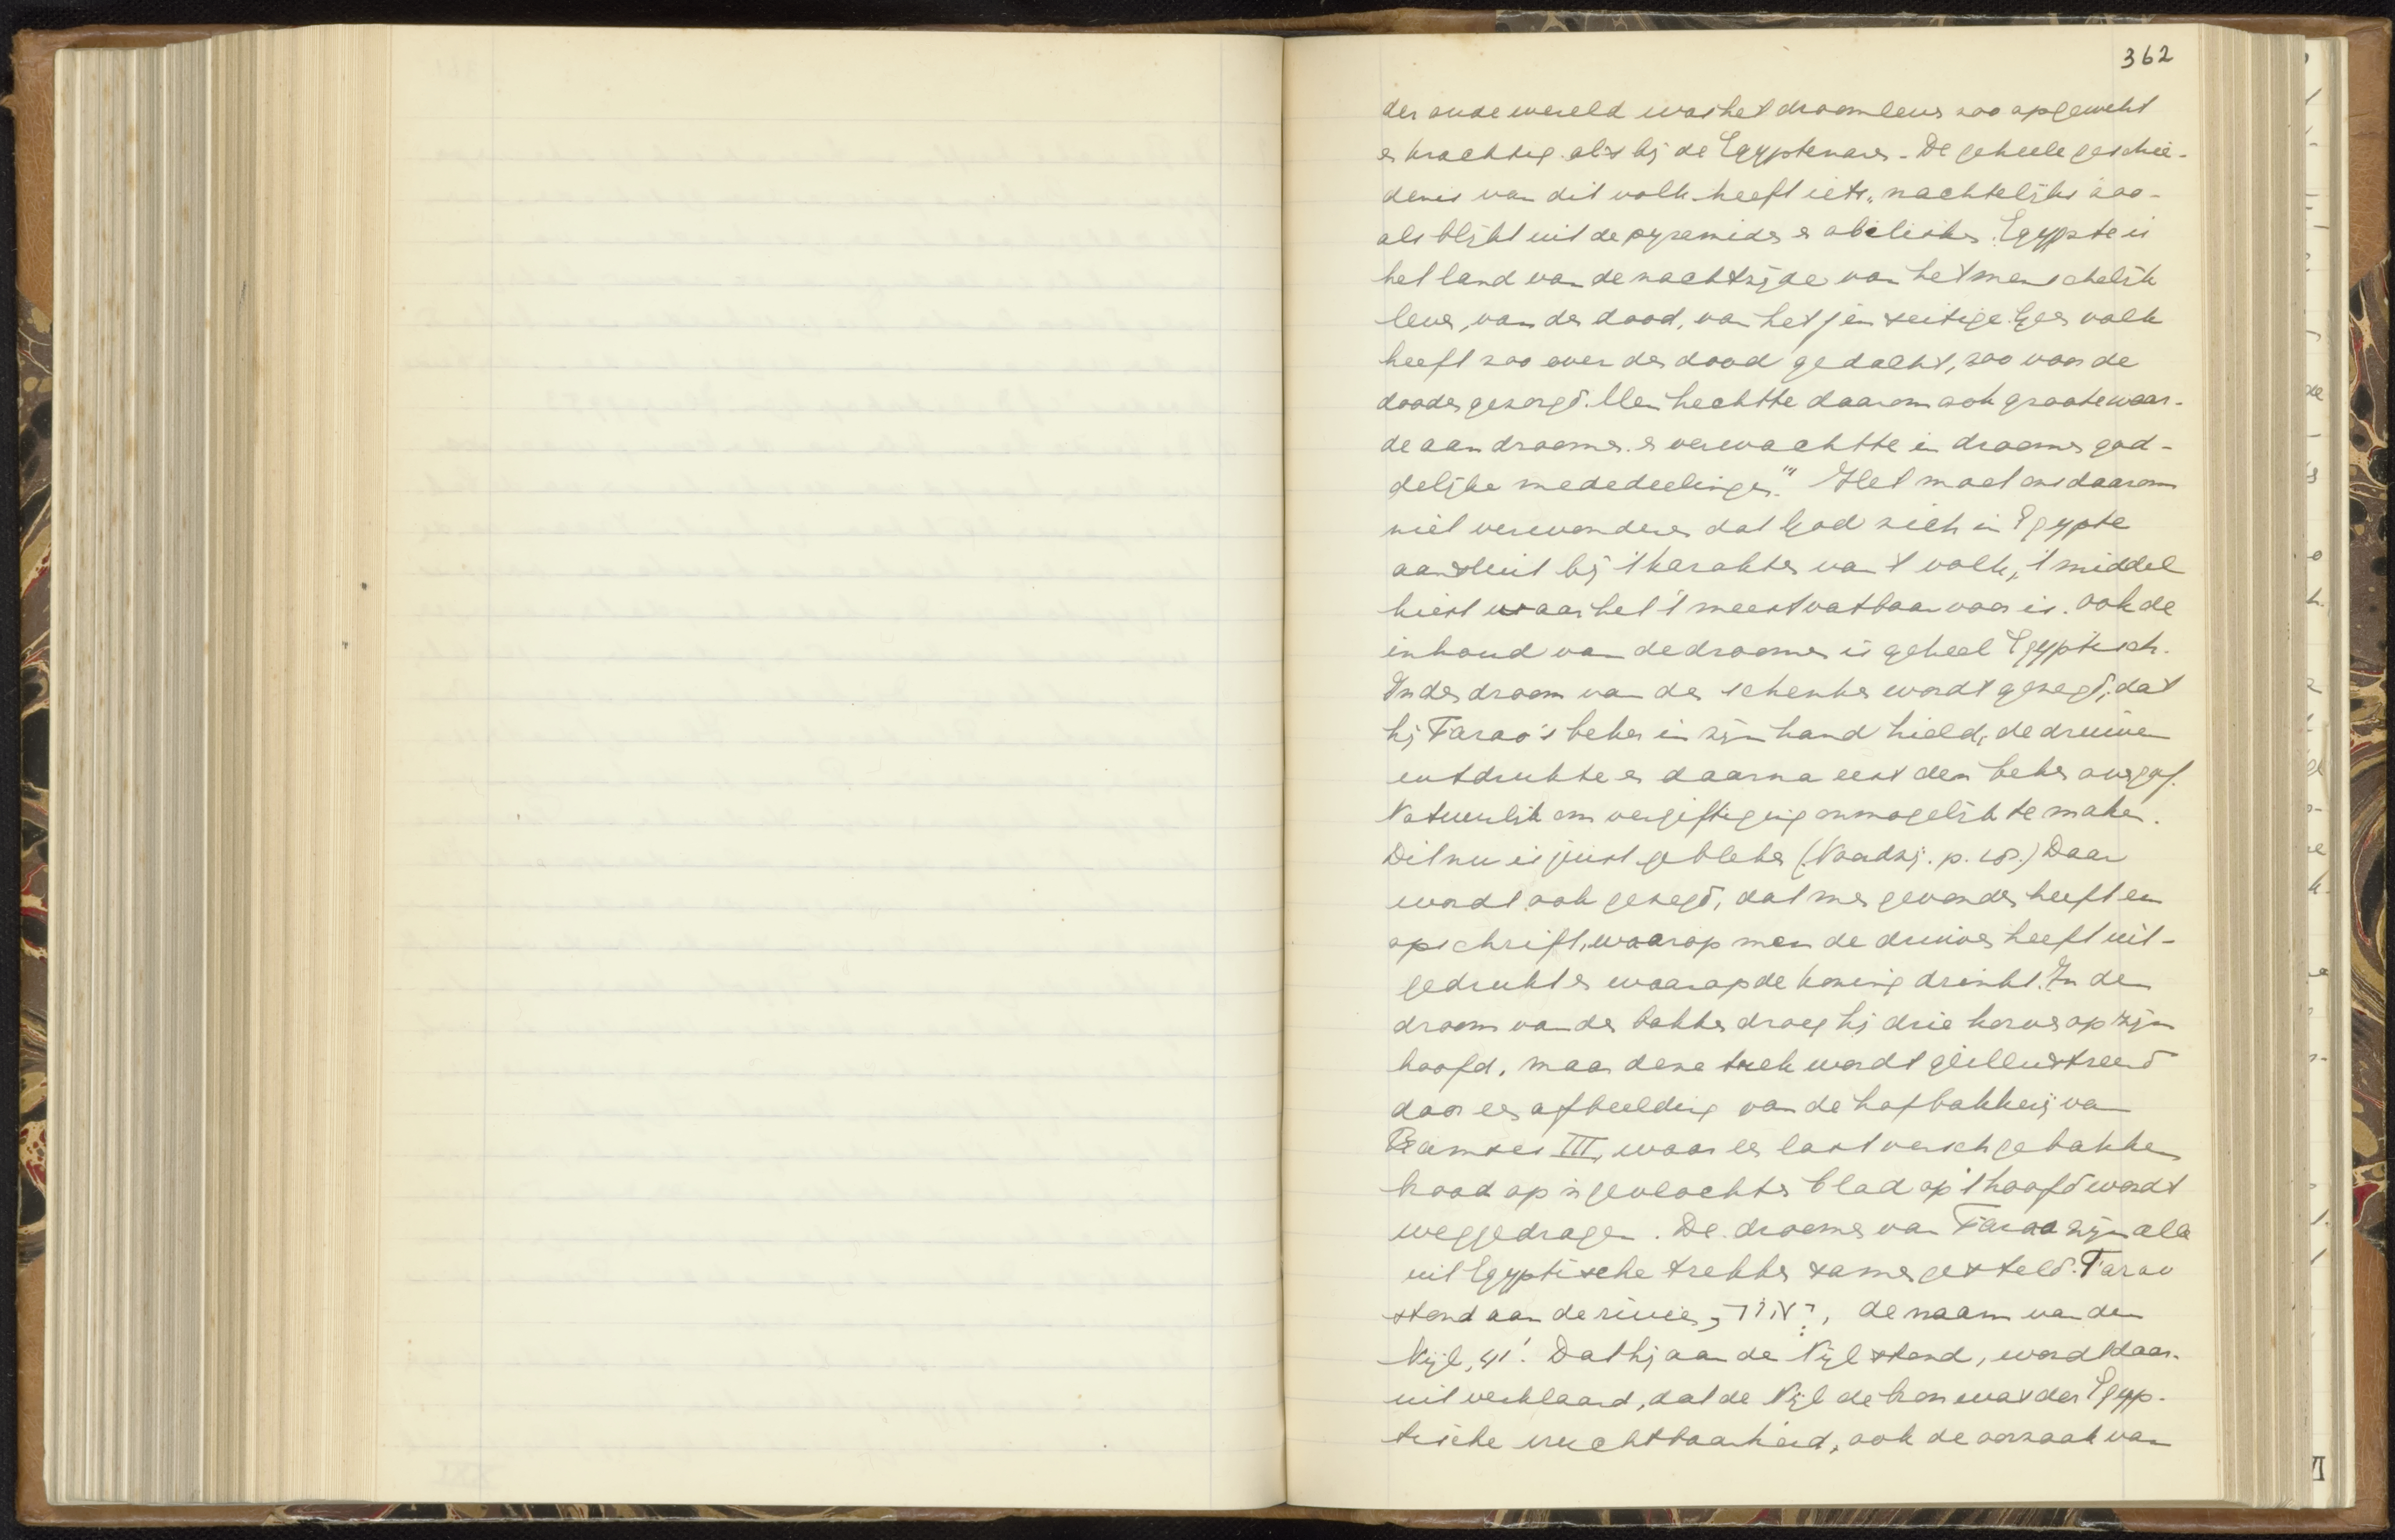 362
der oude wereld was het droomleven zoo opgewekt
en krachtig als bij de Egyptenaren. De geheele geschie-
denis van dit volk heeft iets „nachtelijks zoo-
als blijkt uit de pyramiden en obelisken. Egypte is
het land van de nachtzijde van het menschelijk
leven, van den dood, van het jenseitige. Geen volk
heeft zoo over den dood gedacht, zoo voor de
dooden gezorgd. Men hechtte daarom ook groote waar-
de aan droomen en verwachtte in droomen god-
delijke mededeelingen." Het moet ons daarom
niet verwonderen dat God zich in Egypte
aansluit bij 't karakter van 't volk, 't middel
kiest waar het 't meest vatbaar voor is. Ook de
inhoud van de droomen is geheel Egyptisch.
In den droom van den schenker wordt gezegd, dat
hij Farao's beker in zijn hand hield, de druiven
uitdrukte en daarna eerst den beker overgaf.
Natuurlijk om vergiftiging onmogelijk te maken.
Dit nu is juist gebleken (Noordzij. p. 18.) Daar
wordt ook gezegd, dat men gevonden heeft een
opschrift, waarop men de druiven heeft uit-
gedrukt en waarop de koning drinkt. In den
droom van den bakker droeg hij drie korven op zijn
hoofd, maar deze trek wordt geïllustreerd
door een afbeelding van de hofbakkerij van
Ramses III, waar een last versch gebakken
brood op 'n gevlochten blad op 't hoofd wordt
weggedragen. De droomen van Farao zijn alle
uit Egyptische trekken samengesteld. Farao
stond aan de rivier, יְאֹר, de naam van den
Nijl, 41¹. Dat hij aan de Nijl stond, wordt daar-
uit verklaard, dat de Nijl de bron was der Egyp-
tische vruchtbaarheid, ook de oorzaak van